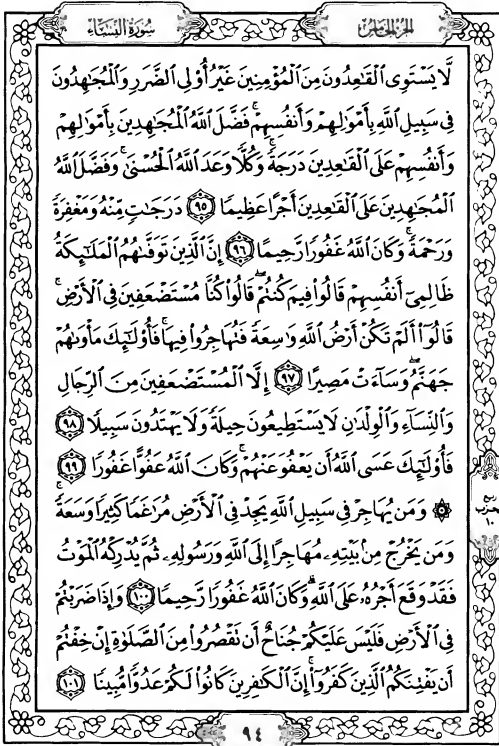 الجزء الخامس
سورة النساء
لَّا يَسْتَوِى ٱلْقَـٰعِدُونَ مِنَ ٱلْمُؤْمِنِينَ غَيْرُ أُو۟لِى ٱلضَّرَرِ وَٱلْمُجَـٰهِدُونَ
فِى سَبِيلِ ٱللَّهِ بِأَمْوَٰلِهِمْ وَأَنفُسِهِمْ ۚ فَضَّلَ ٱللَّهُ ٱلْمُجَـٰهِدِينَ بِأَمْوَٰلِهِمْ
وَأَنفُسِهِمْ عَلَى ٱلْقَـٰعِدِينَ دَرَجَةً ۚ وَكُلًّا وَعَدَ ٱللَّهُ ٱلْحُسْنَىٰ ۚ وَفَضَّلَ ٱللَّهُ
ٱلْمُجَـٰهِدِينَ عَلَى ٱلْقَـٰعِدِينَ أَجْرًا عَظِيمًا ٩٥ دَرَجَـٰتٍ مِّنْهُ وَمَغْفِرَةً
وَرَحْمَةً ۚ وَكَانَ ٱللَّهُ غَفُورًا رَّحِيمًا ٩٦ إِنَّ ٱلَّذِينَ تَوَفَّىٰهُمُ ٱلْمَلَـٰٓئِكَةُ
ظَالِمِىٓ أَنفُسِهِمْ قَالُوا۟ فِيمَ كُنتُمْ ۖ قَالُوا۟ كُنَّا مُسْتَضْعَفِينَ فِى ٱلْأَرْضِ ۚ
قَالُوٓا۟ أَلَمْ تَكُنْ أَرْضُ ٱللَّهِ وَٰسِعَةً فَتُهَاجِرُوا۟ فِيهَا ۚ فَأُو۟لَـٰٓئِكَ مَأْوَىٰهُمْ
جَهَنَّمُ ۖ وَسَآءَتْ مَصِيرًا ٩٧ إِلَّا ٱلْمُسْتَضْعَفِينَ مِنَ ٱلرِّجَالِ
وَٱلنِّسَآءِ وَٱلْوِلْدَٰنِ لَا يَسْتَطِيعُونَ حِيلَةً وَلَا يَهْتَدُونَ سَبِيلًا ٩٨
فَأُو۟لَـٰٓئِكَ عَسَى ٱللَّهُ أَن يَعْفُوَ عَنْهُمْ ۚ وَكَانَ ٱللَّهُ عَفُوًّا غَفُورًا ٩٩
۞ وَمَن يُهَاجِرْ فِى سَبِيلِ ٱللَّهِ يَجِدْ فِى ٱلْأَرْضِ مُرَٰغَمًا كَثِيرًا وَسَعَةً ۚ
وَمَن يَخْرُجْ مِنۢ بَيْتِهِۦ مُهَاجِرًا إِلَى ٱللَّهِ وَرَسُولِهِۦ ثُمَّ يُدْرِكْهُ ٱلْمَوْتُ
فَقَدْ وَقَعَ أَجْرُهُۥ عَلَى ٱللَّهِ ۗ وَكَانَ ٱللَّهُ غَفُورًا رَّحِيمًا ١٠٠ وَإِذَا ضَرَبْتُمْ
فِى ٱلْأَرْضِ فَلَيْسَ عَلَيْكُمْ جُنَاحٌ أَن تَقْصُرُوا۟ مِنَ ٱلصَّلَوٰةِ إِنْ خِفْتُمْ
أَن يَفْتِنَكُمُ ٱلَّذِينَ كَفَرُوٓا۟ ۚ إِنَّ ٱلْكَـٰفِرِينَ كَانُوا۟ لَكُمْ عَدُوًّا مُّبِينًا ١٠١
ربع
الحزب
١٠
٩٤